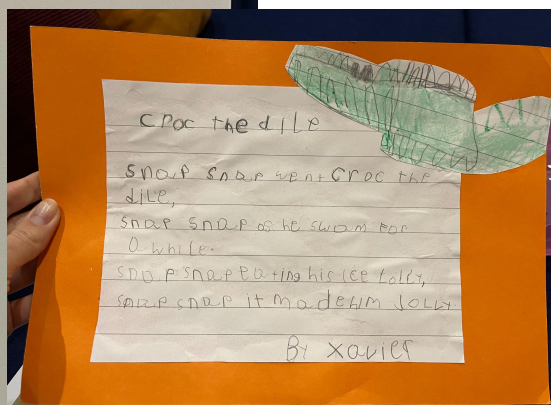 croc the dile
snap snap went croc the
dile,
snap snap as he swam for
a while.
snap snap eating his ice lolly,
snap snap it made him Jolly
By xavier